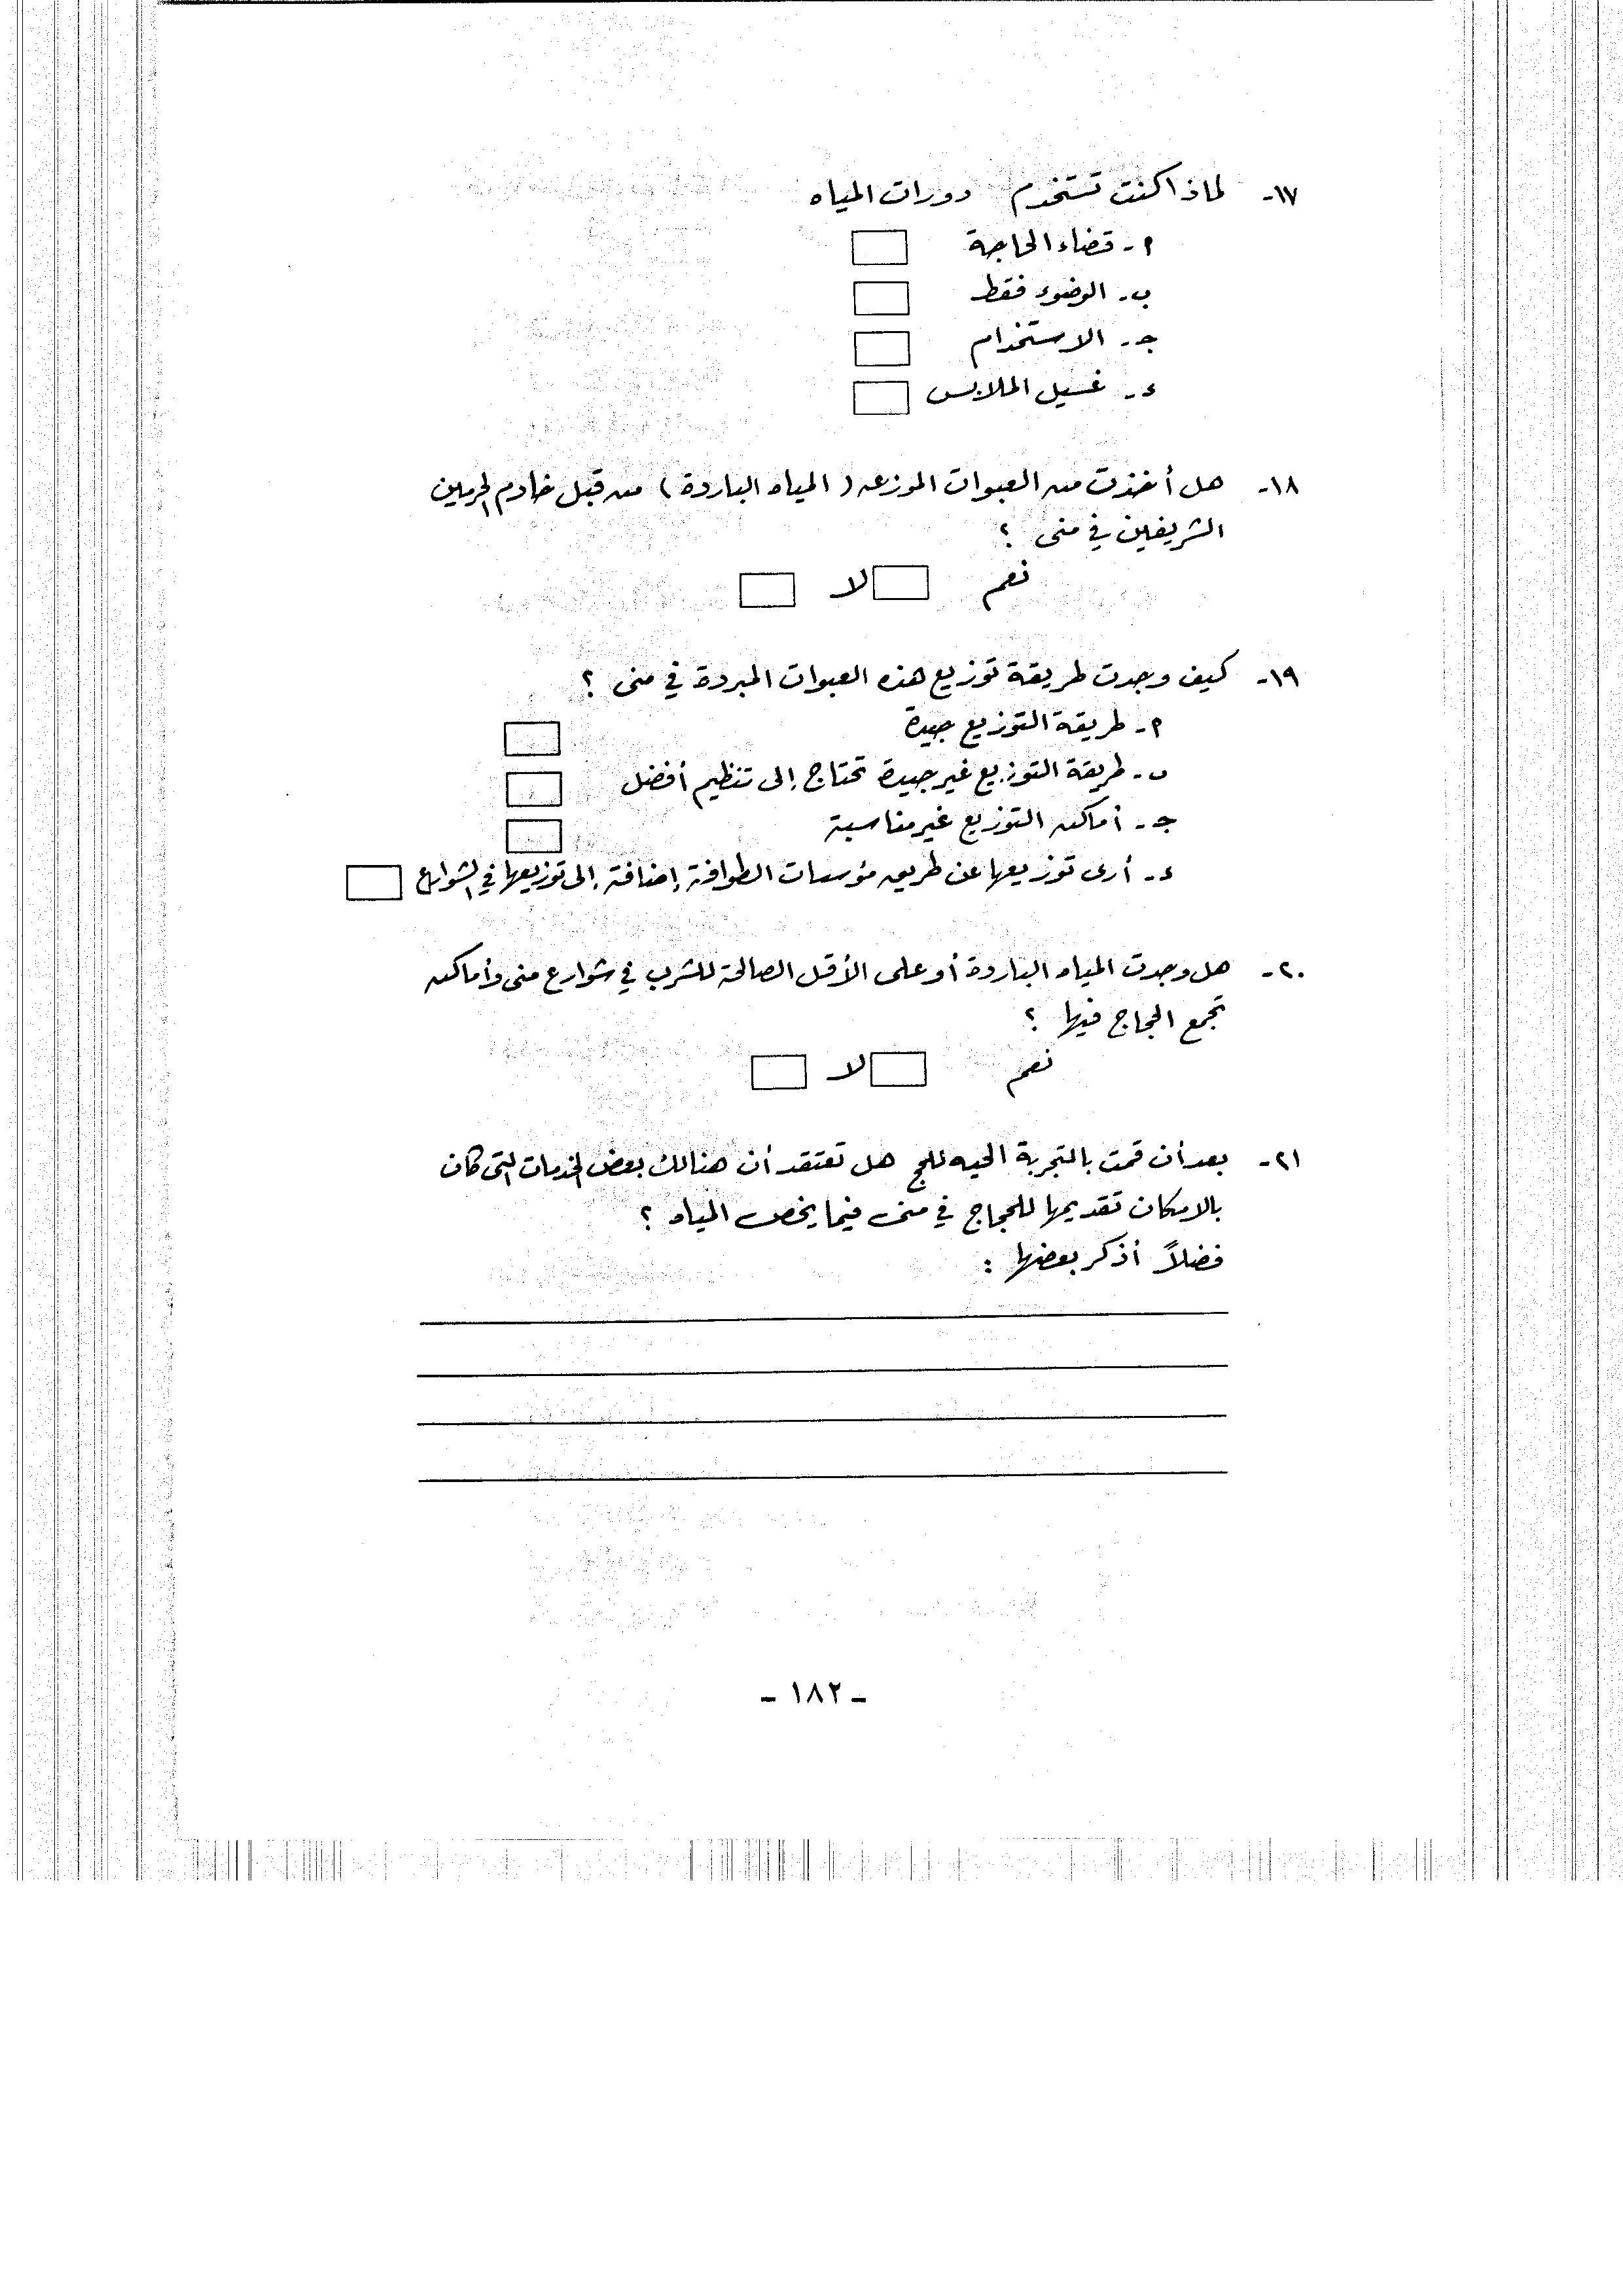 ١٧- لماذا كنت تستخدم دورات المياه
أ- قضاء الحاجة
ب- الوضوء فقط
ج- الاستخدام
د- غسيل الملابس
١٨- هل أخذت من العبوات الموزعه (المياه الباردة) من قبل خادم الحرمين
الشريفين في منى ؟
نعم لا
١٩- كيف وجدت طريقة توزيع هذه العبوات المبردة في منى ؟
أ- طريقة التوزيع جيدة
ب- طريقة التوزيع غير جيدة تحتاج إلى تنظيم أفضل
ج- أماكن التوزيع غير مناسبة
د- أرى توزيعها عن طريق مؤسسات الطوافة إضافة إلى توزيعها في الشوارع
٢٠- هل وجدت المياه الباردة أو على الأقل الصالحة للشرب في شوارع منى وأماكن
تجمع الحجاج فيها ؟
نعم لا
٢١- بعد أن قمت بالتجربة الحيه للحج هل تعتقد أن هنالك بعض الخدمات التي كان
بالامكان تقديمها للحجاج في منى فيما يخص المياه ؟
فضلاً أذكر بعضها :
- ١٨٢ -